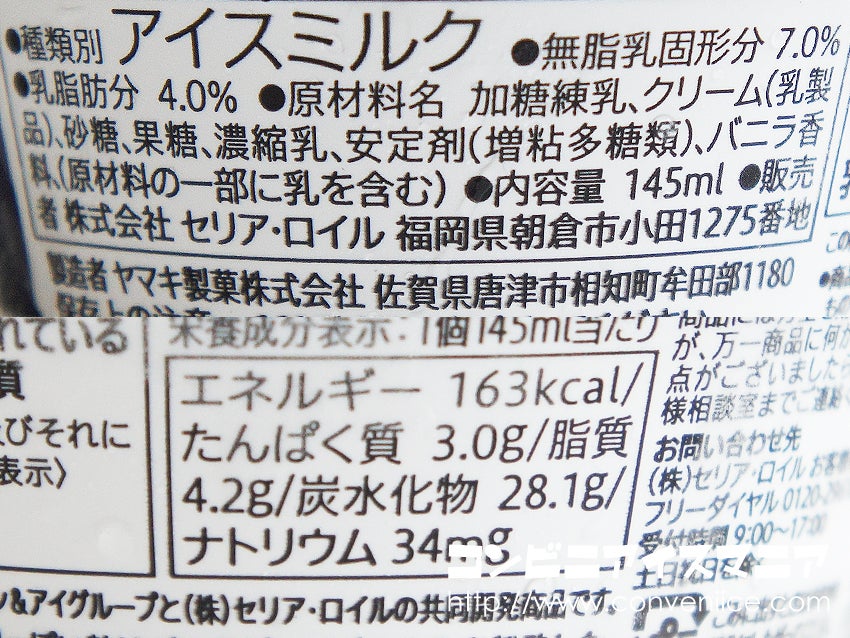 ●種類別 アイスミルク ●無脂乳固形分 7.0%
●乳脂肪分 4.0% ●原材料名 加糖練乳、クリーム(乳製
品)、砂糖、果糖、濃縮乳、安定剤(増粘多糖類)、バニラ香
料、(原材料の一部に乳を含む) ●内容量 145ml ●販売
者 株式会社 セリア・ロイル 福岡県朝倉市小田1275番地
製造者 ヤマキ製菓株式会社 佐賀県唐津市相知町牟田部1180
れている
質
及びそれに
表示〉
栄養成分表示:1個145ml当たり
エネルギー 163kcal/
たんぱく質 3.0g/脂質
4.2g/炭水化物 28.1g/
ナトリウム 34mg
が、万一商品に何か
点がございましたら
様相談室までご連絡
お問い合わせ先
(株)セリア・ロイル お客
フリーダイヤル 0120-2
受付時間 9:00〜17:00
土日祝日を
ン&アイグループと(株)セリア・ロイルの共同開発商品です
コンビニアイスマニア
http://www.conveniice.com/